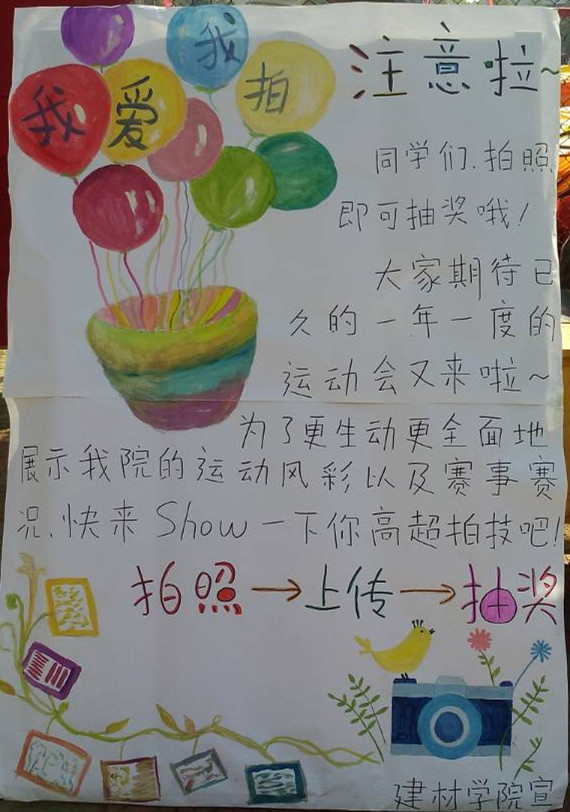 我爱我拍
注意啦~
同学们.拍照
即可抽奖哦!
大家期待已
久的一年一度的
运动会又来啦~
为了更生动更全面地
展示我院的运动风彩以及赛事赛
况.快来Show一下你高超拍技吧!
拍照→上传→抽奖
建材学院宣